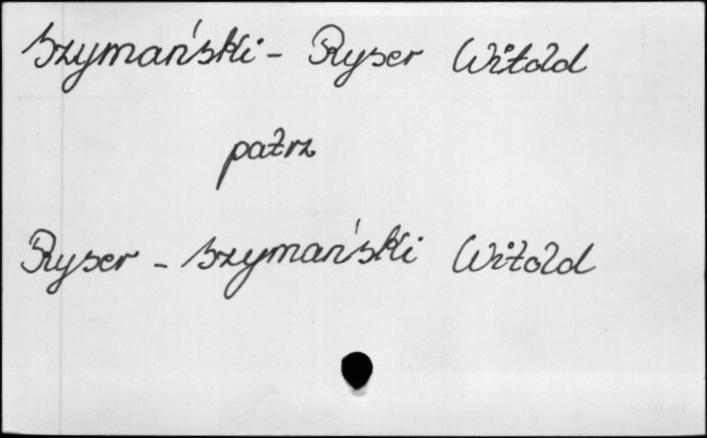 Szymański - Ryser Witold
patrz
Ryser - Szymański Witold